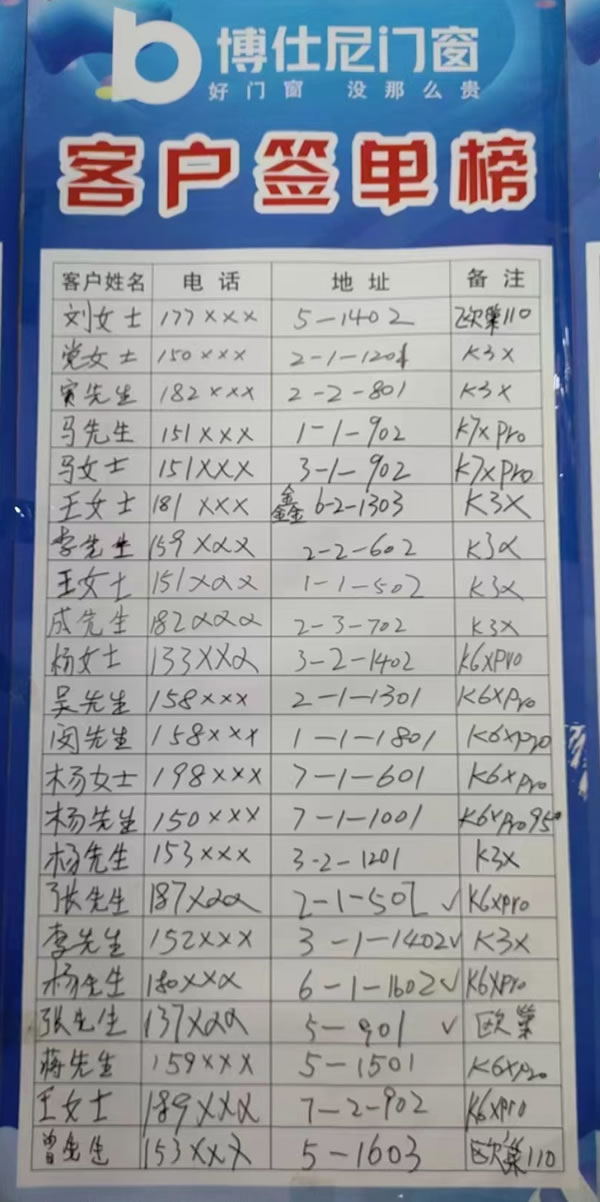 b 博仕尼门窗
好门窗 没那么贵
客户签单榜
客户姓名 电话 地址 备注
刘女士 177××× 5-1402 欧巢110
党女士 150××× 2-1-1201 K3X
寅先生 182××× 2-2-801 K3X
马先生 151××× 1-1-902 K7XPro
马女士 151××× 3-1-902 K7XPro
王女士 181××× 鑫 6-2-1303 K3X
李先生 159××× 2-2-602 K3X
王女士 151××× 1-1-502 K3X
成先生 182××× 2-3-702 K3X
杨女士 133××× 3-2-1402 K6XPro
吴先生 158××× 2-1-1301 K6XPro
闵先生 158××× 1-1-1801 K6XPro
杨女士 198××× 7-1-601 K6XPro
杨先生 150××× 7-1-1001 K6XPro95°
杨先生 153××× 3-2-1201 K3X
张先生 187××× 2-1-502 ✓ K6XPro
李先生 152××× 3-1-1402 ✓ K3X
杨先生 180××× 6-1-1602 ✓ K6XPro
张先生 137××× 5-901 ✓ 欧巢
蒋先生 159××× 5-1501 K6XPro
王女士 189××× 7-2-902 K6XPro
曾先生 153××× 5-1603 欧巢110